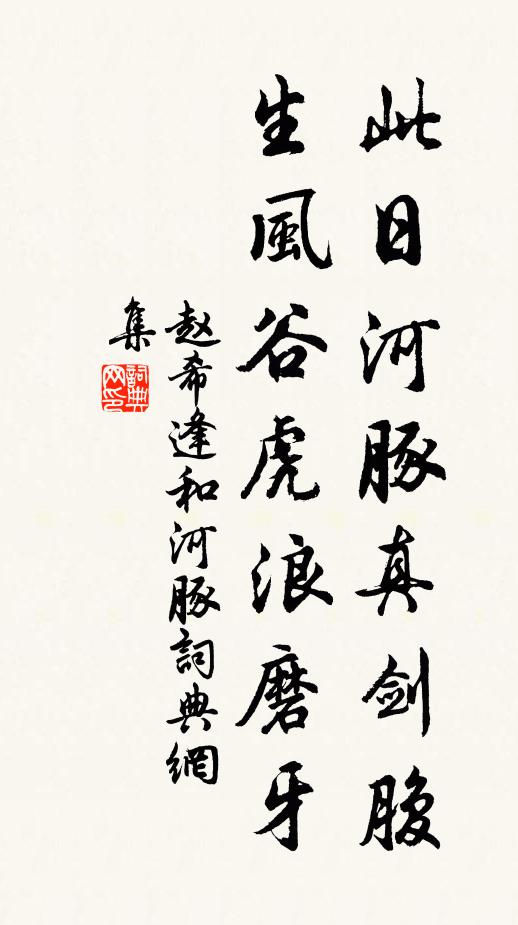 此日河豚真剑腹
生風谷虎浪磨牙
赵希逢和河豚詞典網
集
詞典网印